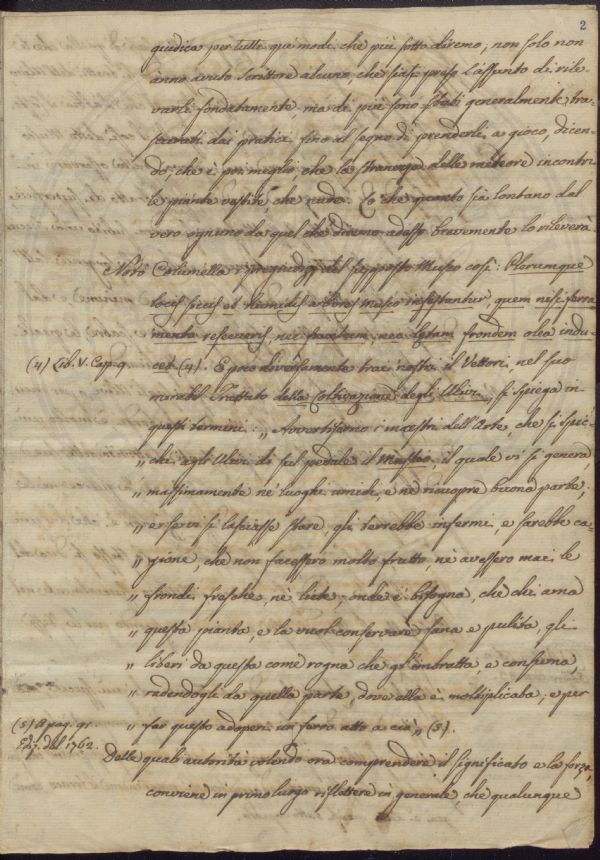 2
giudica per tutti que' modi, che più sotto diremo; non solo non
anno avuto Scrittore alcuno, che siasi preso l'assunto di rile
varli fondatamente ma di più sono stati generalmente tra-
scurati dai pratici fino al segno di prenderli a gioco, dicen-
do; che è poi meglio che la stranezza delle meteore incontri
le piante vestite, che nude. Lo che quanto sia lontano dal
vero ognuno da quel che diremo adesso brevemente lo rileverà.
Notò Columella i pregiudizj del supposto Musco così: Plerumque
locis siccis et humidis arbores musco infestantur, quem nisi ferra
mento resecueris, nec fructum, nec lętam frondem olea indu-
(4) Lib. V. Cap. 9
cet (4). E poco diversamente trai nostri il Vettori, nel suo
mirabil Trattato della Coltivazione degli Ulivi, si spiega in
questi termini: „ Avvertiscono i maestri dell'Arte, che si spic-
„ chi agli Ulivi di sul pedale il Muschio, il quale vi si genera,
„ massimamente ne' luoghi umidi, e ne ricuopre buona parte;
„ e se vi si lasciasse stare, gli terrebbe infermi, e sarebbe ca-
„ gione, che non facessero molto frutto, nè avessero mai le
„ frondi fresche, nè liete; onde è bisogna, che chi ama
„ questa pianta, e la vuol conservare sana e pulita, gli
„ liberi da questa come rogna che gl'imbratta, e consuma,
„ radendogli da quella parte, dove ella è moltiplicata, e per
(5) A pag. 91.
Ediz. del 1762.
„ far questo adoperi un ferro atto a ciò „ (5).
Delle quali autorità volendo ora comprendere il significato e la forza,
conviene in primo luogo riflettere in generale, che qualunque